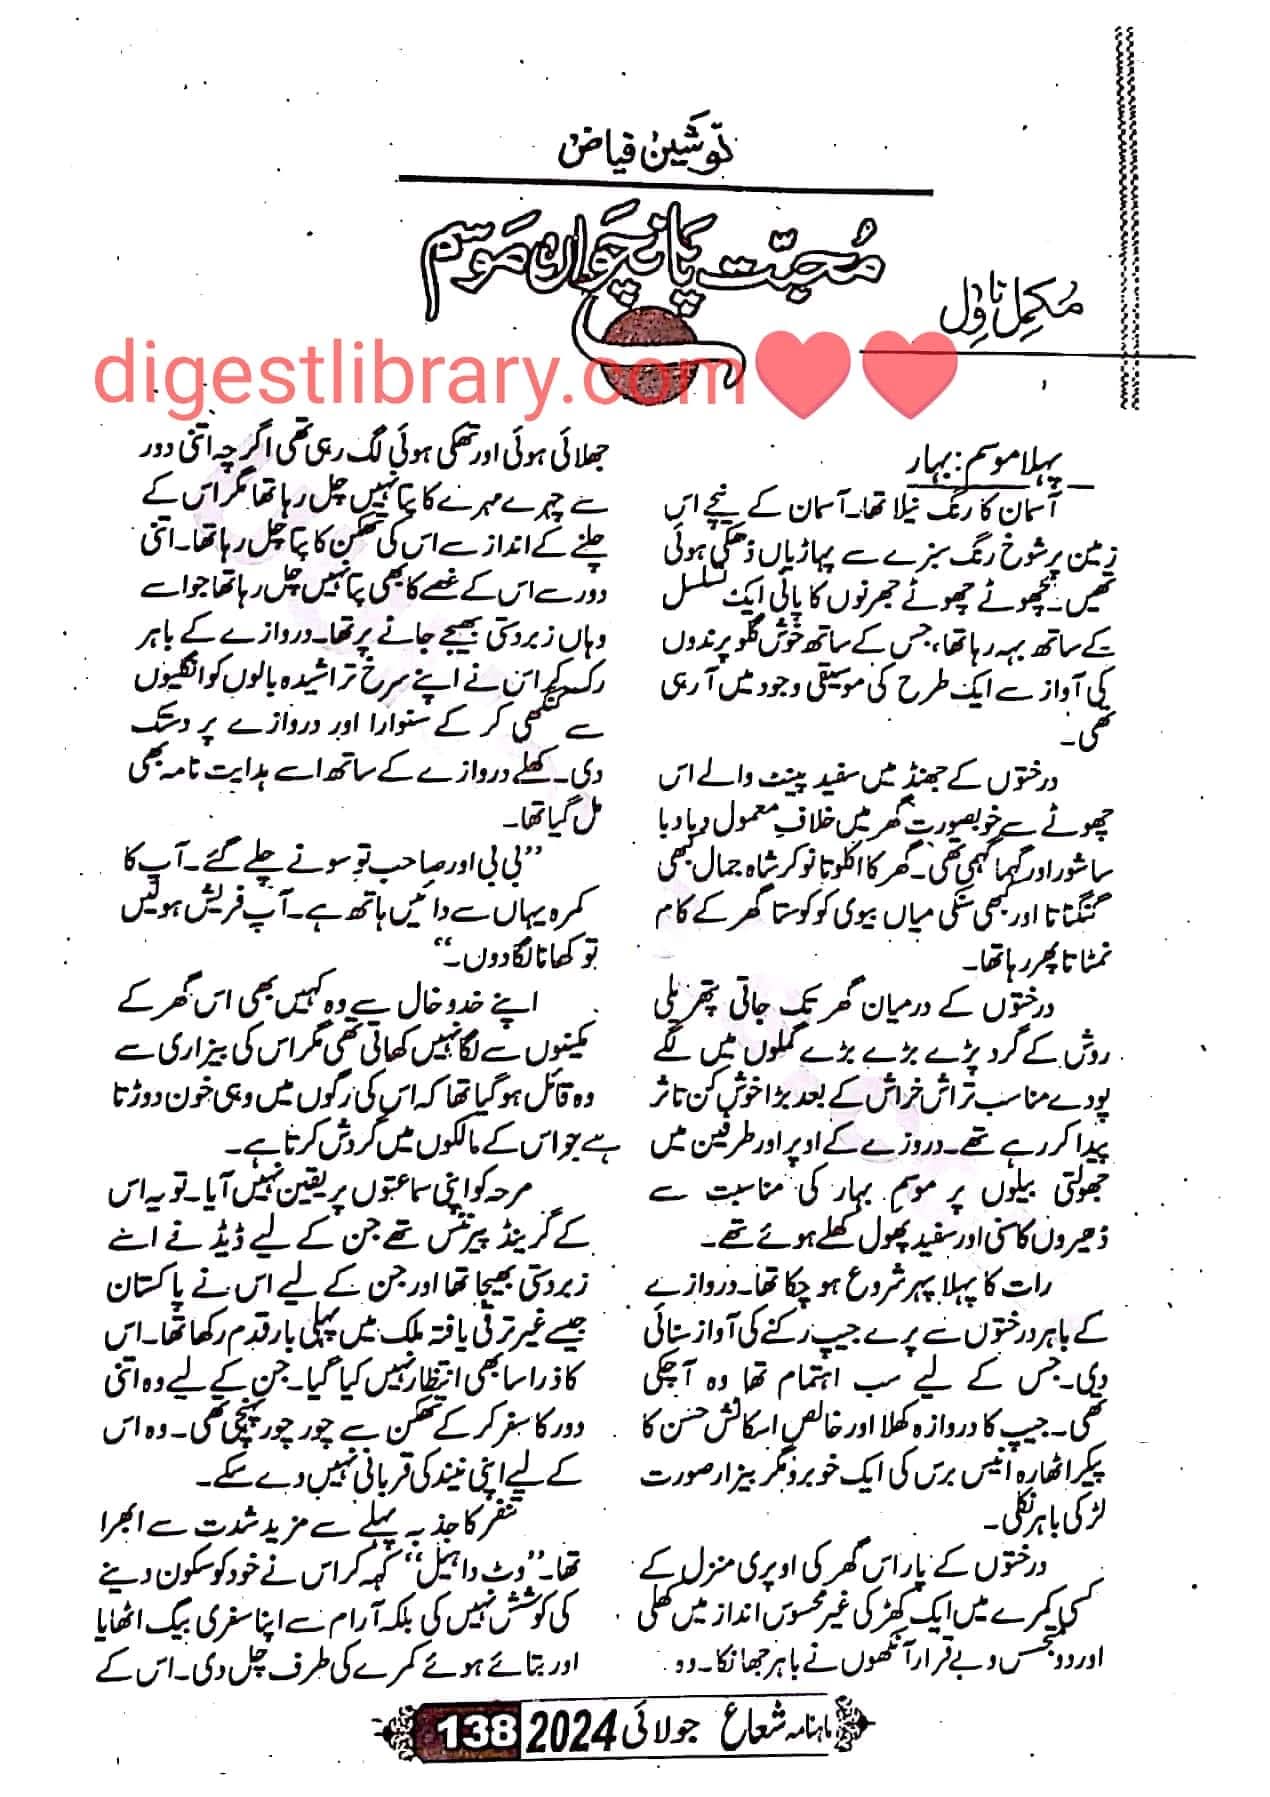 نوشین فیاض
محبّت پانچواں موسم
مکمل ناول
digestlibrary.com
پہلا موسم: بہار
آسمان کا رنگ نیلا تھا۔ آسمان کے نیچے اس
زمین پر شوخ رنگ سبزے سے پہاڑیاں ڈھکی ہوئی
تھیں۔ چھوٹے چھوٹے جھرنوں کا پانی ایک تسلسل
کے ساتھ بہہ رہا تھا، جس کے ساتھ خوش گلو پرندوں
کی آواز سے ایک طرح کی موسیقی وجود میں آ رہی
تھی۔
درختوں کے جھنڈ میں سفید پینٹ والے اس
چھوٹے سے خوبصورت گھر میں خلاف معمول دبا دبا
سا شور اور گہما گہمی تھی۔ گھر کا اکلوتا نوکر شاہ جمال کبھی
گنگناتا اور کبھی سنکی میاں بیوی کو کوستا گھر کے کام
نمٹاتا پھر رہا تھا۔
درختوں کے درمیان گھر تک جاتی پتھریلی
روش کے گرد پڑے بڑے بڑے گملوں میں لگے
پودے مناسب تراش خراش کے بعد بڑا خوش کن تاثر
پیدا کر رہے تھے۔ دروزے کے اوپر اور طرفین میں
جھولتی بیلوں پر موسم بہار کی مناسبت سے
ڈھیروں کاسنی اور سفید پھول کھلے ہوئے تھے۔
رات کا پہلا پہر شروع ہو چکا تھا۔ دروازے
کے باہر درختوں سے پرے جیپ رکنے کی آواز سنائی
دی۔ جس کے لیے سب اہتمام تھا وہ آچکی
تھی۔ جیپ کا دروازہ کھلا اور خالص اسکاٹش حسن کا
پیکر اٹھارہ انیس برس کی ایک خوبرو مگر بیزار صورت
لڑکی باہر نکلی۔
درختوں کے پار اس گھر کی اوپری منزل کے
کسی کمرے میں ایک کھڑکی غیر محسوس انداز میں کھلی
اور دو تجسس و بے قرار آنکھوں نے باہر جھانکا۔ وہ
جھلائی ہوئی اور تھکی ہوئی لگ رہی تھی اگرچہ اتنی دور
سے چہرے مہرے کا پتا نہیں چل رہا تھا مگر اس کے
چلنے کے انداز سے اس کی تھکن کا پتا چل رہا تھا۔ اتنی
دور سے اس کے غصے کا بھی پتا نہیں چل رہا تھا جو اسے
وہاں زبردستی بھیجے جانے پر تھا۔ دروازے کے باہر
رک کر اس نے اپنے سرخ تراشیدہ بالوں کو انگلیوں
سے کنگھی کر کے سنوارا اور دروازے پر دستک
دی۔ کھلے دروازے کے ساتھ اسے ہدایت نامہ بھی
مل گیا تھا۔
”بی بی اور صاحب تو سونے چلے گئے۔ آپ کا
کمرہ یہاں سے دائیں ہاتھ ہے۔ آپ فریش ہولیں
تو کھانا لگا دوں۔“
اپنے خدوخال سے وہ کہیں بھی اس گھر کے
مکینوں سے لگا نہیں کھاتی تھی مگر اس کی بیزاری سے
وہ قائل ہو گیا تھا کہ اس کی رگوں میں وہی خون دوڑتا
ہے جو اس کے مالکوں میں گردش کرتا ہے۔
مرحہ کو اپنی سماعتوں پر یقین نہیں آیا۔ تو یہ اس
کے گرینڈ پیرنٹس تھے جن کے لیے ڈیڈ نے اسے
زبردستی بھیجا تھا اور جن کے لیے اس نے پاکستان
جیسے غیر ترقی یافتہ ملک میں پہلی بار قدم رکھا تھا۔ اس
کا ذرا سا بھی انتظار نہیں کیا گیا۔ جن کے لیے وہ اتنی
دور کا سفر کر کے تھکن سے چور چور پہنچی تھی۔ وہ اس
کے لیے اپنی نیند کی قربانی نہیں دے سکے۔
تنفر کا جذبہ پہلے سے مزید شدت سے ابھرا
تھا۔ ”وٹ دا ہیل“ کہہ کر اس نے خود کو سکون دینے
کی کوشش نہیں کی بلکہ آرام سے اپنا سفری بیگ اٹھایا
اور بتائے ہوئے کمرے کی طرف چل دی۔ اس کے
ماہنامہ شعاع جولائی 2024 138